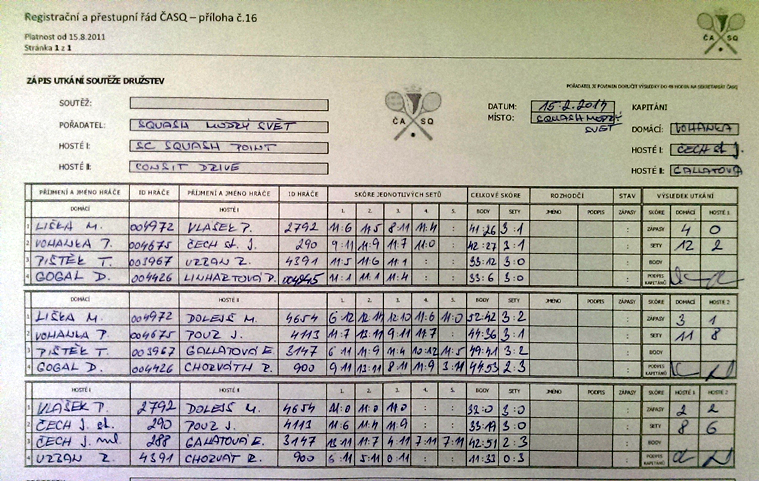 Registrační a přestupní řád ČASQ – příloha č.16
Platnost od 15.8.2011
Stránka 1 z 1
ČA SQ
ZÁPIS UTKÁNÍ SOUTĚŽE DRUŽSTEV
POŘADATEL JE POVINEN DORUČIT VÝSLEDKY DO 48 HODIN NA SEKRETARIÁT ČASQ
SOUTĚŽ: DATUM: 15.2.2014 KAPITÁNI
POŘADATEL: SQUASH MODRÝ SVĚT MÍSTO: SQUASH MODRÝ SVĚT DOMÁCÍ: VOHANKA
HOSTÉ I: SC SQUASH POINT ČA SQ HOSTÉ I: ČECH st. J.
HOSTÉ II: CONSIT DZIVE HOSTÉ II: GALLATOVÁ
PŘÍJMENÍ A JMÉNO HRÁČE ID HRÁČE PŘÍJMENÍ A JMÉNO HRÁČE ID HRÁČE SKÓRE JEDNOTLIVÝCH SETŮ CELKOVÉ SKÓRE ROZHODČÍ STAV VÝSLEDEK UTKÁNÍ
DOMÁCÍ HOSTÉ I 1. 2. 3. 4. 5. BODY SETY JMENO PODPIS ZÁPASY SKÓRE DOMÁCÍ HOSTÉ 1
1 LIŠKA M. 004972 VLAŠEK P. 2792 11:6 11:5 8:11 11:4 : 41:26 3:1 : ZÁPASY 4 0
2 VOHANKA P. 004675 ČECH st. J. 290 9:11 11:9 11:7 11:0 : 42:27 3:1 : SETY 12 2
3 PIŠTĚK T. 003967 URBAN R. 4391 11:5 11:6 11:1 : : 33:12 3:0 : BODY
4 GOGAL D. 004426 LINHARTOVÁ P. 11:1 11:1 11:4 : : 33:6 3:0 : PODPIS KAPITÁNŮ
DOMÁCÍ HOSTÉ II 1. 2. 3. 4. 5. BODY SETY JMENO PODPIS ZÁPASY SKÓRE DOMÁCÍ HOSTÉ 2
1 LIŠKA M. 004972 DOLEJŠ M. 4654 6:12 12:14 12:10 11:6 11:0 52:42 3:2 : ZÁPASY 3 1
2 VOHANKA P. 004675 POUZ J. 4113 11:7 13:11 9:11 11:7 : 44:36 3:1 : SETY 11 8
3 PIŠTĚK T. 003967 GALLATOVÁ E. 3147 6:11 11:9 11:4 10:12 11:5 49:41 3:2 : BODY
4 GOGAL D. 004426 CHORVÁTH R. 900 9:11 13:11 8:11 11:9 3:11 44:53 2:3 : PODPIS KAPITÁNŮ
HOSTÉ I HOSTÉ II 1. 2. 3. 4. 5. BODY SETY JMENO PODPIS ZÁPASY SKÓRE HOSTÉ 1 HOSTÉ 2
1 VLAŠEK P. 2792 DOLEJŠ M. 4654 11:0 11:0 11:0 : : 33:0 3:0 : ZÁPASY 2 2
2 ČECH J. st. 290 POUZ J. 4113 11:6 11:4 11:9 : : 33:19 3:0 : SETY 8 6
3 ČECH J. ml. 288 GALLATOVÁ E. 3147 13:11 11:7 4:11 7:11 7:11 42:51 2:3 : BODY
4 URBAN R. 4391 CHORVÁT R. 900 6:11 5:11 0:11 : : 11:33 0:3 : PODPIS KAPITÁNŮ